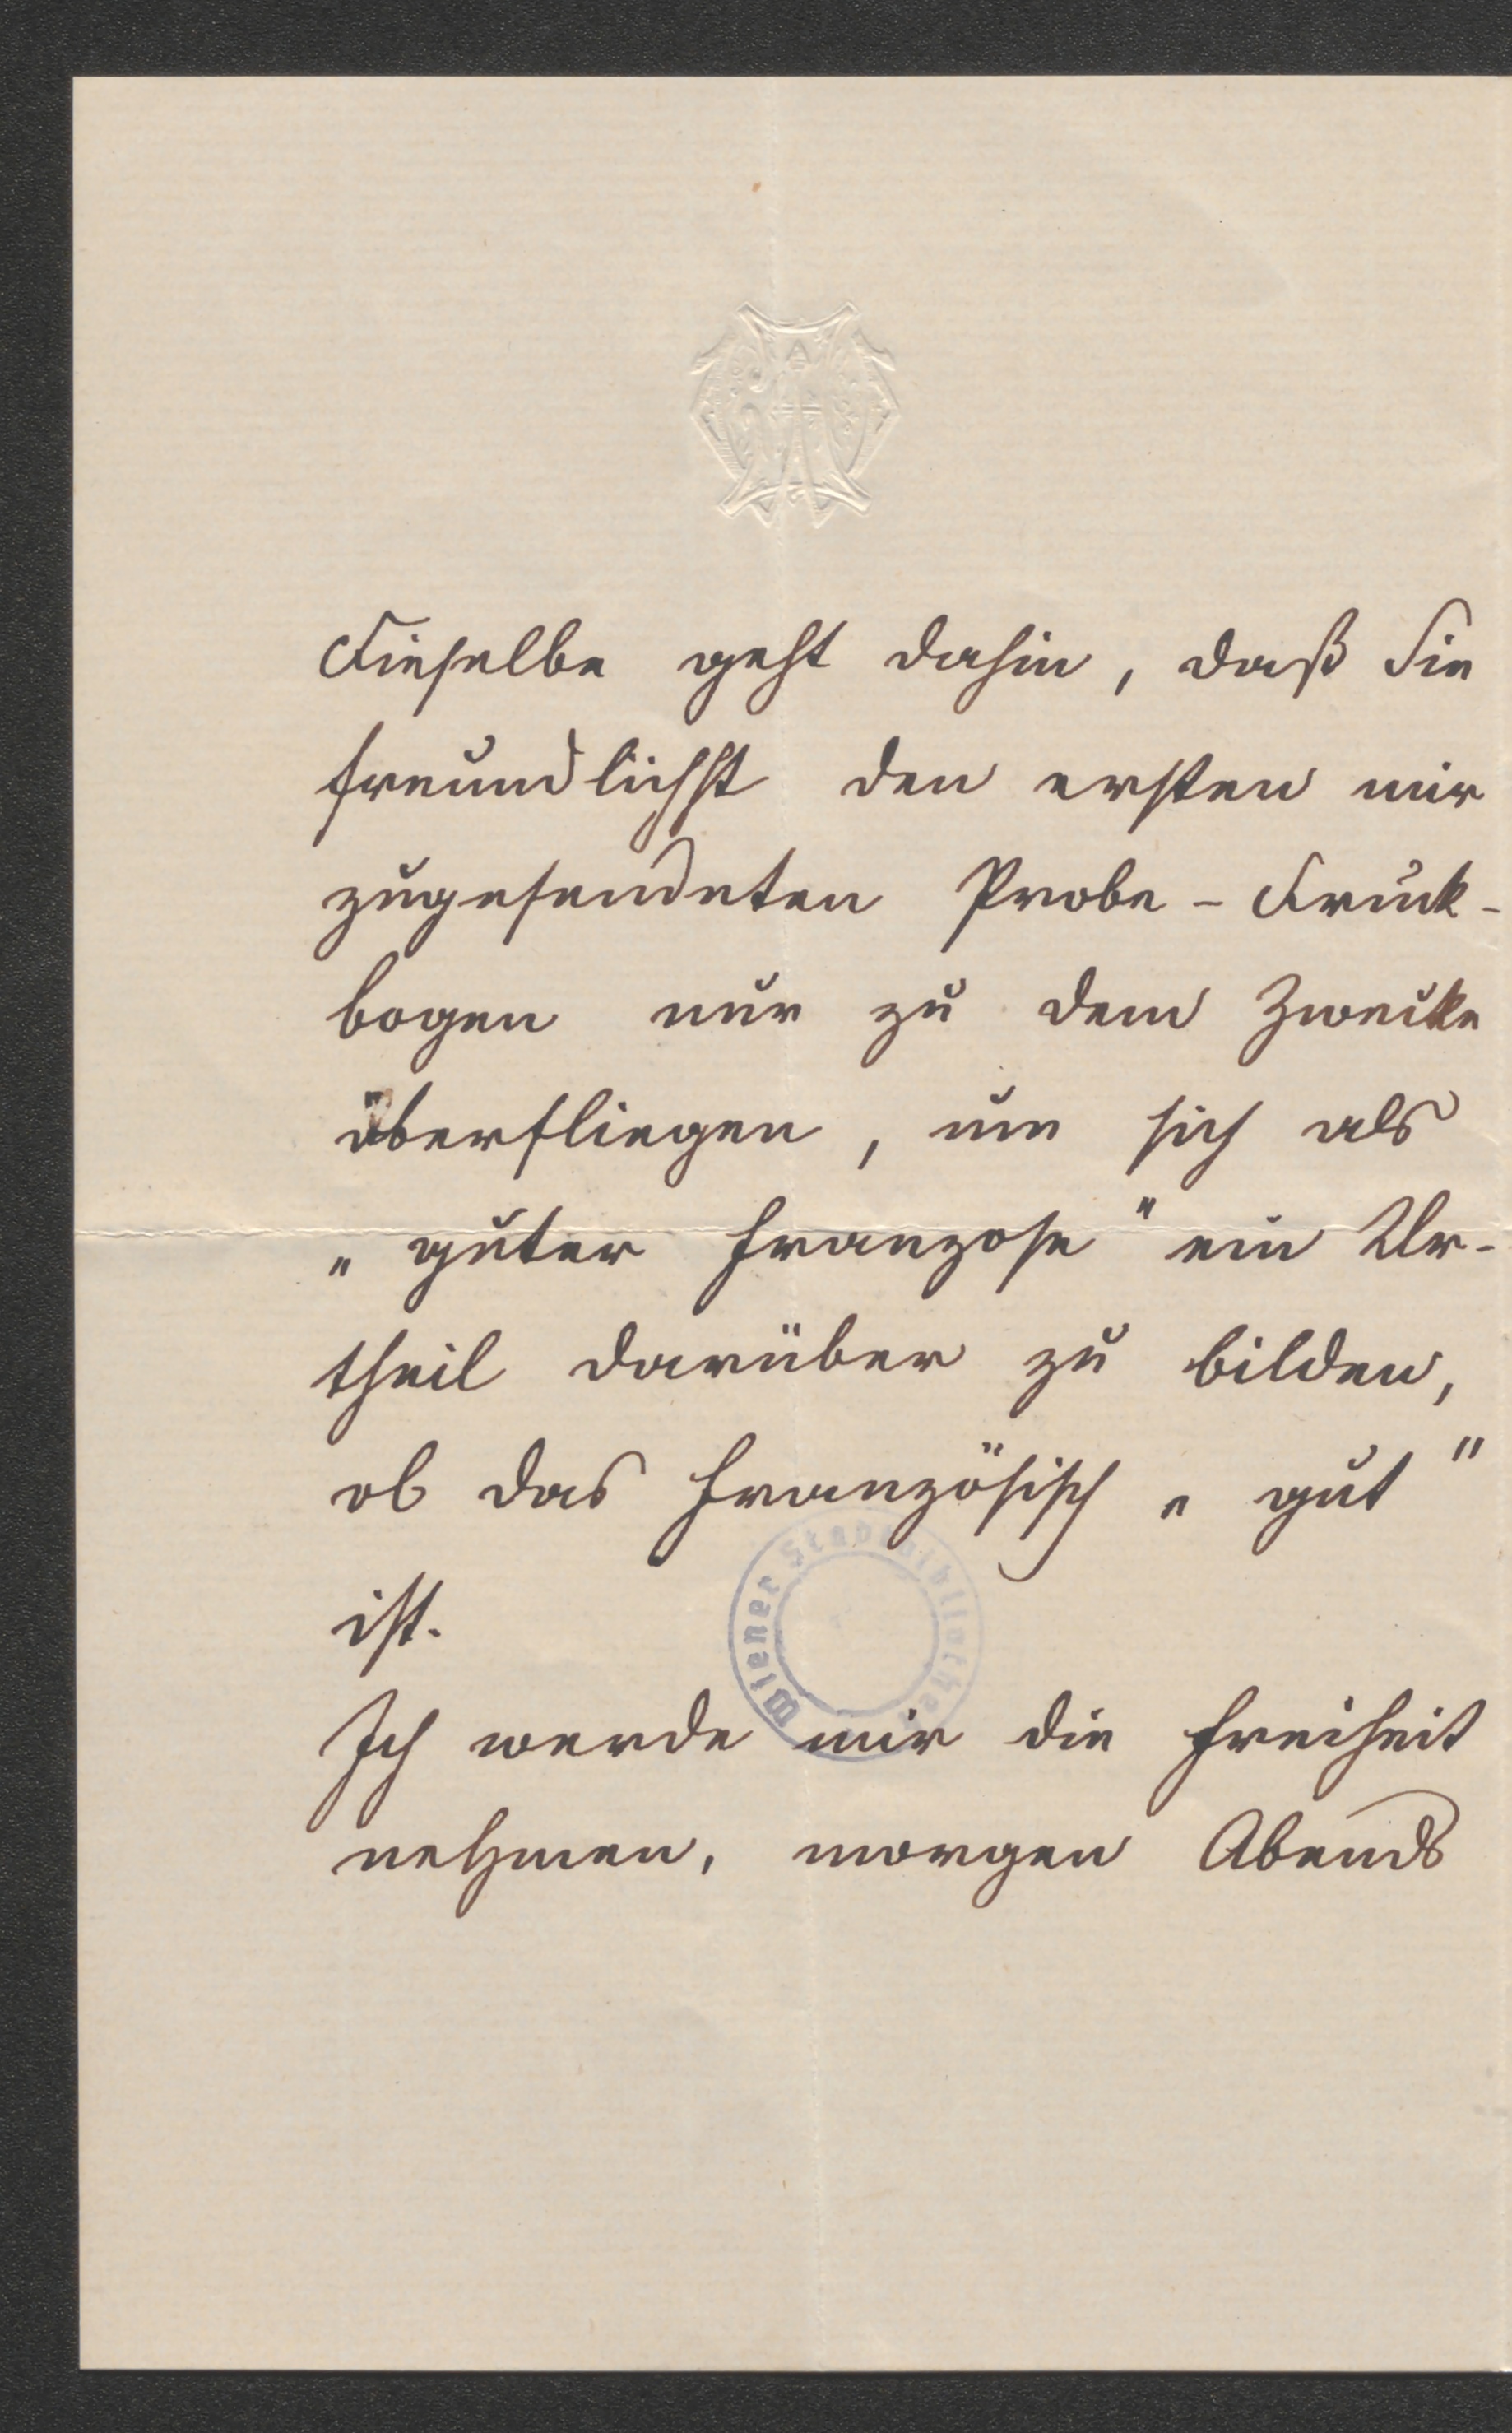 Dieselbe geht dahin, daß Sie
freundlichst den ersten mir
zugesendeten Probe-Druck-
bogen nur zu dem Zwecke
überfliegen, um sich als
„guter Franzose" ein Ur-
theil darüber zu bilden,
ob das Französisch „gut"
ist.
Wiener Stadtbibliothek
Ich werde mir die Freiheit
nehmen, morgen Abends